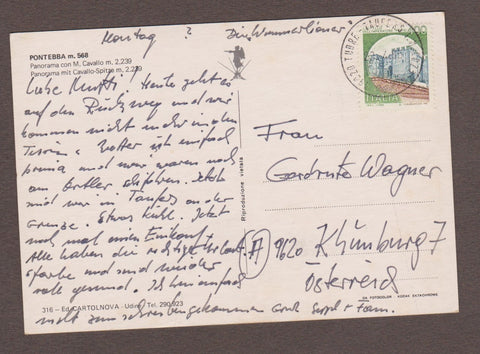 Montag ?
PONTEBBA m. 568
Panorama con M. Cavallo m. 2.239
Panorama mit Cavallo-Spitze m. 2.239
Liebe Mutti. Heute geht es
auf den Rückweg und wir
kommen nicht mehr in den
Wetter ist einfach
prima und wir waren noch
am Ortler schifahren. Jetzt
sind wir in Taufers an der
Grenze. Etwas kühl. Jetzt
noch mal einen Einkauf.
Alle haben die richtige Urlaubs
farbe und sind wieder
voll gesund. Ich bin einfach
nicht zum schreiben gekommen
316 - Ed. CARTOLNOVA - Udine Tel. 290.923
Riproduzione vietata
ITALIA
TUBRE - TAUFERS
Frau
Gertrute Wagner
A 9620
Österreich
FOTOCOLOR KODAK EKTACHROME